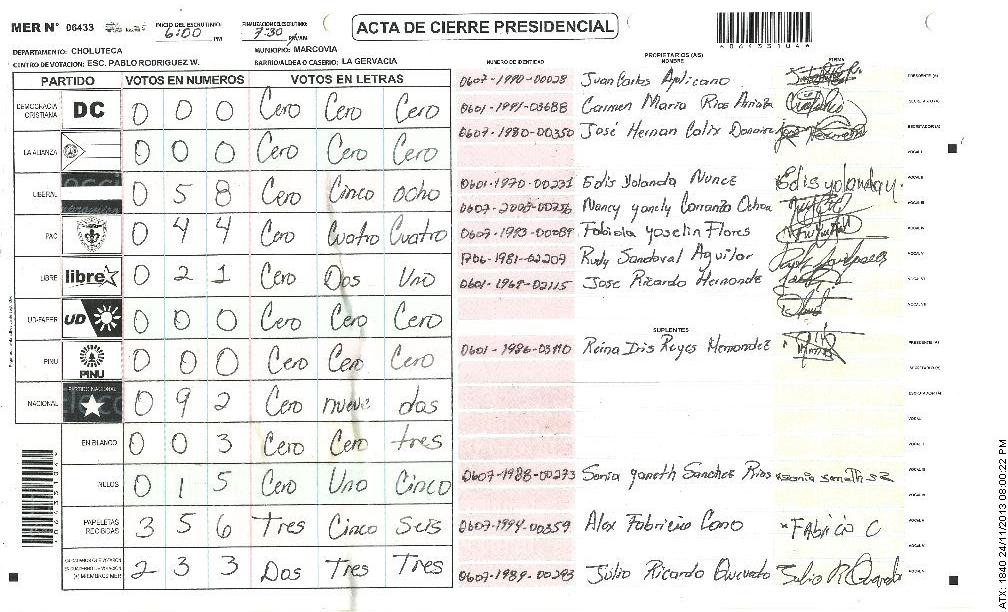 MER N° 06433
INICIO DEL ESCRUTINIO: 6:00 PM
FINALIZACION ESCRUTINIO: 7:30 PM/AM
ACTA DE CIERRE PRESIDENCIAL
DEPARTAMENTO: CHOLUTECA MUNICIPIO: MARCOVIA
CENTRO DE VOTACION: ESC. PABLO RODRIGUEZ W. BARRIO/ALDEA O CASERIO: LA GERVACIA
PARTIDO VOTOS EN NUMEROS VOTOS EN LETRAS
DEMOCRACIA CRISTIANA DC 0 0 0 Cero Cero Cero
LA ALIANZA 0 0 0 Cero Cero Cero
LIBERAL 0 5 8 Cero Cinco ocho
PAC 0 4 4 Cero Cuatro Cuatro
LIBRE libre 0 2 1 Cero Dos Uno
UD-FAPER UD 0 0 0 Cero Cero Cero
PINU PINU 0 0 0 Cero Cero Cero
NACIONAL PARTIDO NACIONAL 0 9 2 Cero nueve dos
EN BLANCO 0 0 3 Cero Cero tres
NULOS 0 1 5 Cero Uno Cinco
PAPELETAS RECIBIDAS 3 5 6 Tres Cinco Seis
2 3 3 Dos Tres Tres
NUMERO DE IDENTIDAD PROPIETARIOS (AS) NOMBRE FIRMA
0607-1990-00028 Juan Carlos Aplicano PRESIDENTE (A)
0601-1991-03688 Carmen Maria Rios SECRETARIO (A)
0607-1980-00350 José Hernan Calix ESCRUTADOR (A)
VOCAL I
0601-1970-00231 Edis Yolanda Nunez Edis yolanda VOCAL II
Nancy yanely Carranza Ochoa VOCAL III
0607-1983-00089 Fabiola yoselin Flores
1706-1981-02209 Rudy Sandoval Aguilar VOCAL V
0601-1968-02115 Jose Ricardo VOCAL VI
SUPLENTES
0601-1986-03110 Reina Iris Reyes Hernandez PRESIDENTE (A)
SECRETARIO (A)
ESCRUTADOR (A)
VOCAL I
0607-1988-00273 Sonia yaneth Sanchez Rios
0607-1994-00359 Alex Fabricio Cano FAbricio C
0607-1989-00293 Júlio Ricardo Quevedo
ATX: 1840 24/11/2013 08:00:22 PM